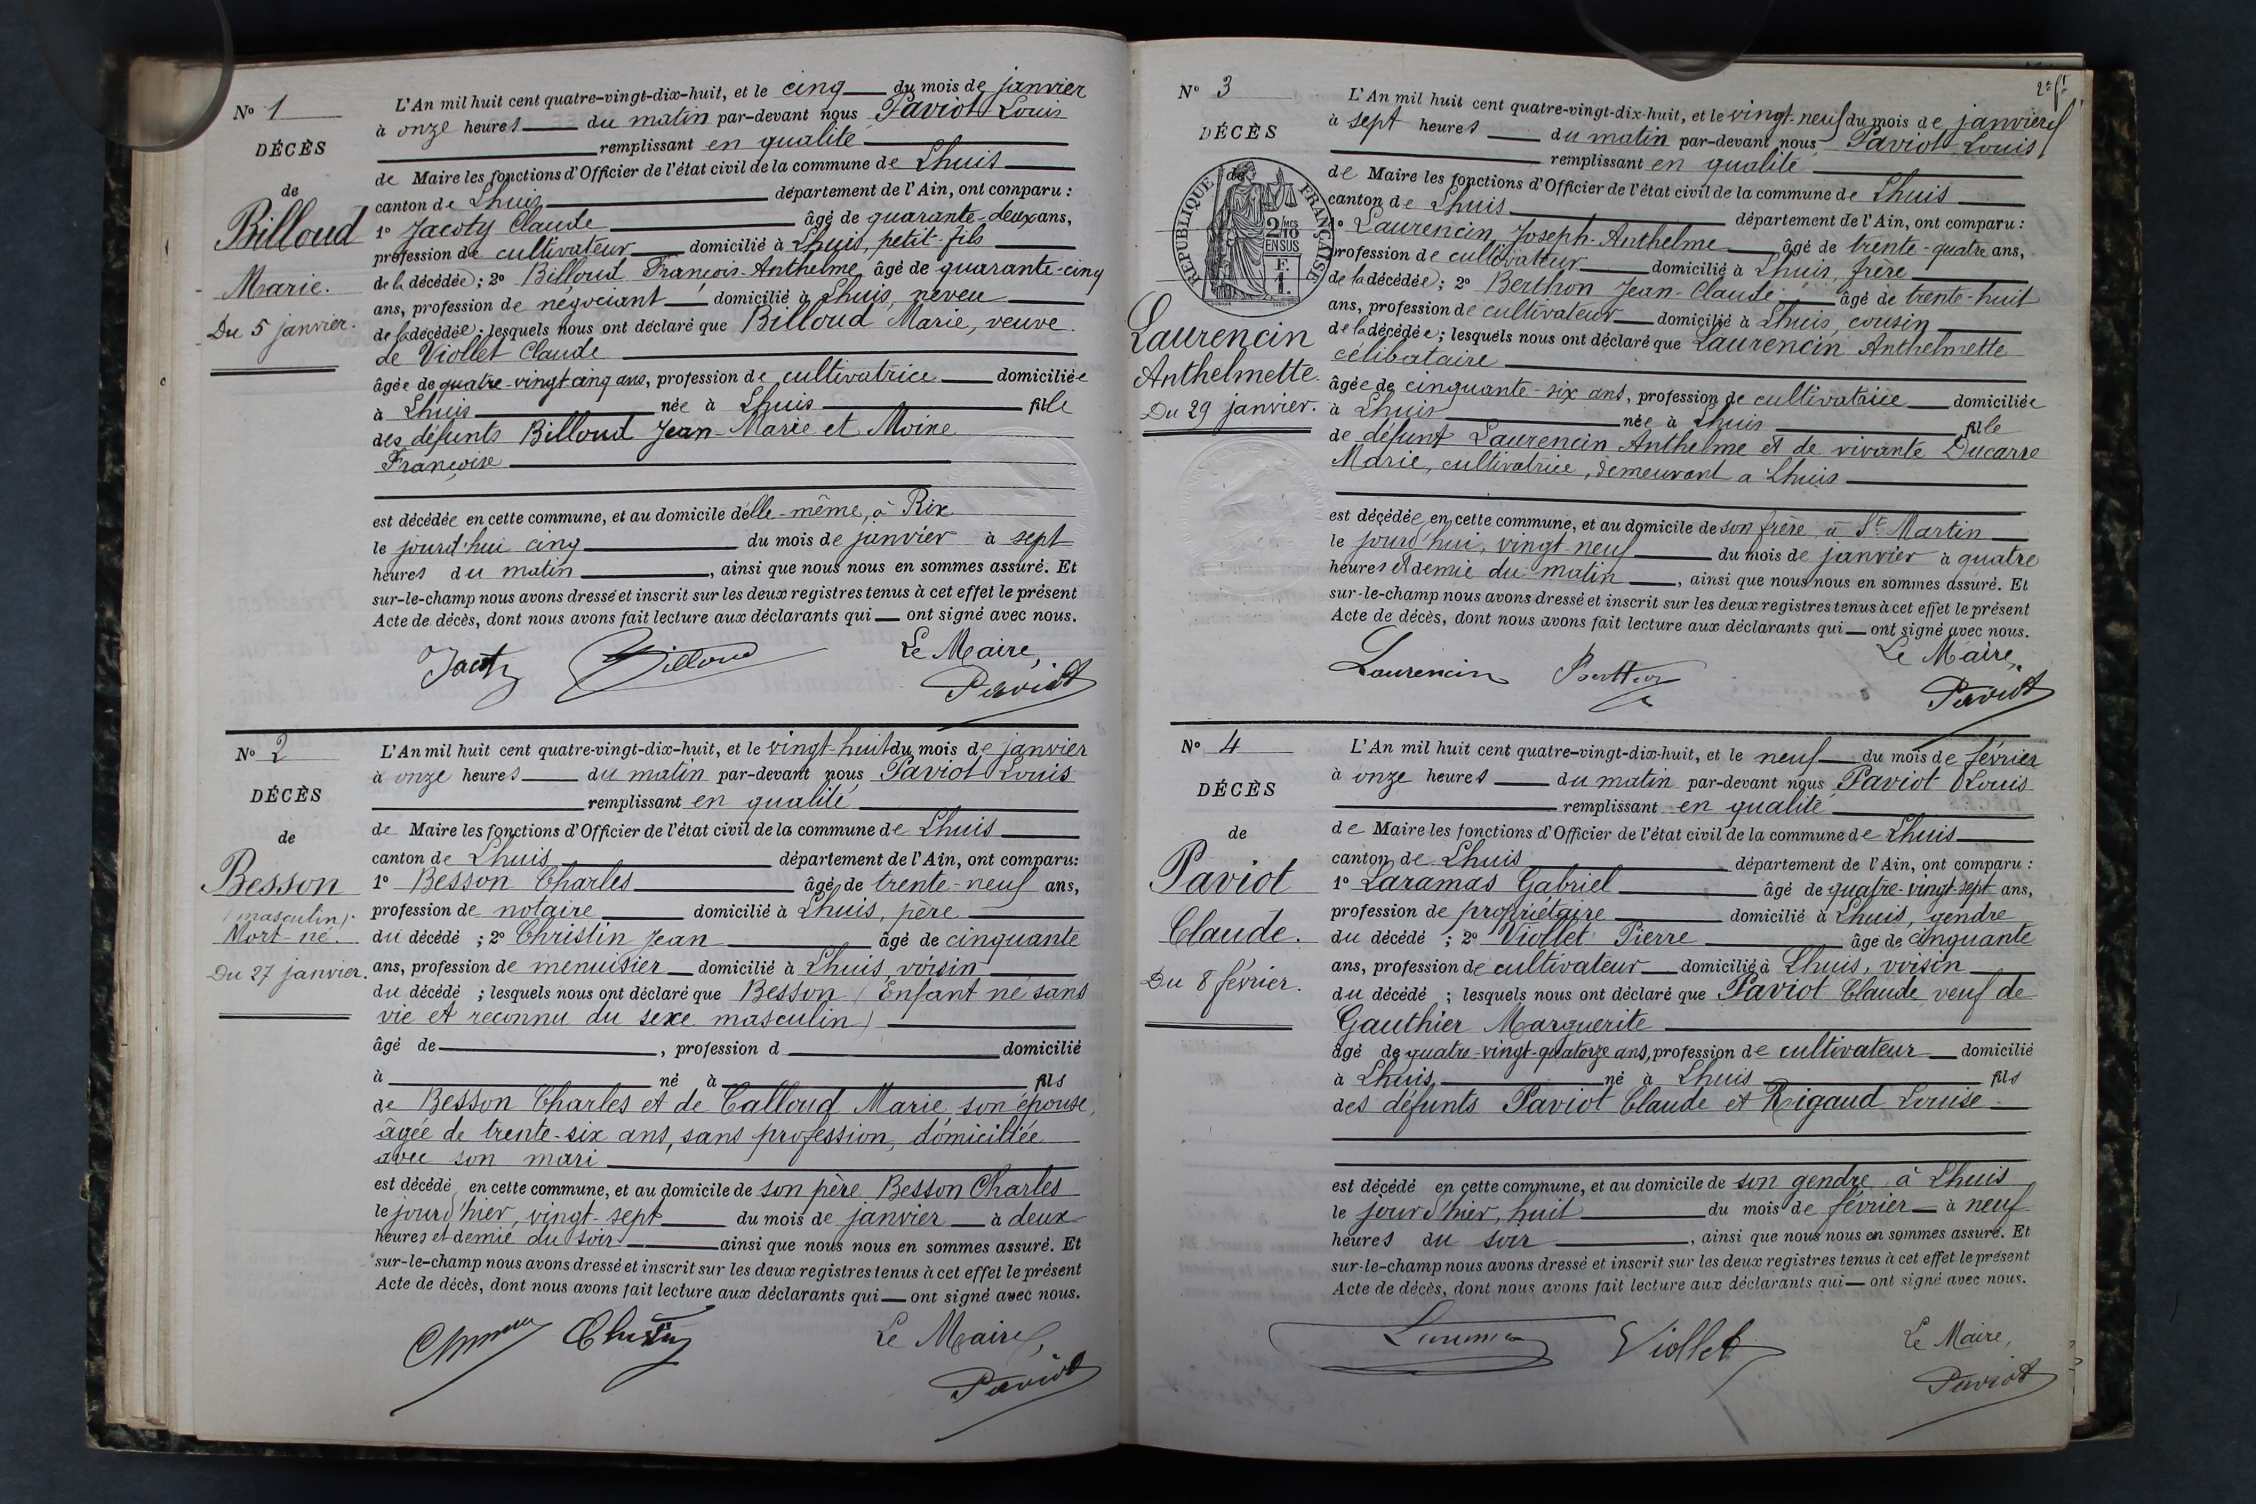 N° 1
DÉCÈS
de
Billoud
Marie.
Du 5 janvier.
L'An mil huit cent quatre-vingt-dix-huit, et le cinq du mois de janvier
à onze heures du matin par-devant nous Paviot Louis
remplissant en qualité
de Maire les fonctions d'Officier de l'état civil de la commune de Lhuis
canton de Lhuis département de l'Ain, ont comparu :
1° Jacoty Claude âgé de quarante-deux ans,
profession de cultivateur domicilié à Lhuis, petit-fils
de la décédée ; 2° Billoud François-Anthelme âgé de quarante-cinq
ans, profession de négociant domicilié à Lhuis, neveu
de la décédée ; lesquels nous ont déclaré que Billoud Marie, veuve
de Viollet Claude
âgée de quatre-vingt-cinq ans, profession de cultivatrice domiciliée
à Lhuis née à Lhuis fille
des défunts Billoud Jean-Marie et Moine
Françoise
est décédée en cette commune, et au domicile d'elle-même, à Rix
le jourd'hui cinq du mois de janvier à sept
heures du matin, ainsi que nous nous en sommes assuré. Et
sur-le-champ nous avons dressé et inscrit sur les deux registres tenus à cet effet le présent
Acte de décès, dont nous avons fait lecture aux déclarants qui ont signé avec nous.
Le Maire,
Jacoty Billoud Paviot
N° 2
DÉCÈS
de
Besson
(masculin).
Mort-né.
Du 27 janvier.
L'An mil huit cent quatre-vingt-dix-huit, et le vingt-huit du mois de janvier
à onze heures du matin par-devant nous Paviot Louis
remplissant en qualité
de Maire les fonctions d'Officier de l'état civil de la commune de Lhuis
canton de Lhuis département de l'Ain, ont comparu :
1° Besson Charles âgé de trente-neuf ans,
profession de notaire domicilié à Lhuis, père
du décédé ; 2° Christin Jean âgé de cinquante
ans, profession de menuisier domicilié à Lhuis, voisin
du décédé ; lesquels nous ont déclaré que Besson (Enfant né sans
vie et reconnu du sexe masculin)
âgé de , profession d domicilié
à né à fils
de Besson Charles et de Calloud Marie son épouse,
âgée de trente-six ans, sans profession, domiciliée
avec son mari
est décédé en cette commune, et au domicile de son père Besson Charles
le jour d'hier, vingt-sept du mois de janvier à deux
heures et demie du soir ainsi que nous nous en sommes assuré. Et
sur-le-champ nous avons dressé et inscrit sur les deux registres tenus à cet effet le présent
Acte de décès, dont nous avons fait lecture aux déclarants qui ont signé avec nous.
Le Maire,
Paviot
2e ft
N° 3
DÉCÈS
de
RÉPUBLIQUE FRANÇAISE
2/10
EN SUS
Laurencin
Anthelmette.
Du 29 janvier.
L'An mil huit cent quatre-vingt-dix-huit, et le vingt-neuf du mois de janvier
à sept heures du matin par-devant nous Paviot Louis
remplissant en qualité
de Maire les fonctions d'Officier de l'état civil de la commune de Lhuis
canton de Lhuis département de l'Ain, ont comparu :
1° Laurencin Joseph-Anthelme âgé de trente-quatre ans,
profession de cultivateur domicilié à Lhuis, frère
de la décédée ; 2° Berthon Jean-Claude âgé de trente-huit
ans, profession de cultivateur domicilié à Lhuis, cousin
de la décédée ; lesquels nous ont déclaré que Laurencin Anthelmette
célibataire
âgée de cinquante-six ans, profession de cultivatrice domiciliée
à Lhuis née à Lhuis fille
de défunt Laurencin Anthelme et de vivante Ducarre
Marie, cultivatrice, demeurant a Lhuis
est décédée en cette commune, et au domicile de son frère à St Martin
le jourd'hui, vingt-neuf du mois de janvier à quatre
heures et demie du matin, ainsi que nous nous en sommes assuré. Et
sur-le-champ nous avons dressé et inscrit sur les deux registres tenus à cet effet le présent
Acte de décès, dont nous avons fait lecture aux déclarants qui ont signé avec nous.
Le Maire,
Laurencin Berthon Paviot
N° 4
DÉCÈS
de
Paviot
Claude.
Du 8 février.
L'An mil huit cent quatre-vingt-dix-huit, et le neuf du mois de février
à onze heures du matin par-devant nous Paviot Louis
remplissant en qualité
de Maire les fonctions d'Officier de l'état civil de la commune de Lhuis
canton de Lhuis département de l'Ain, ont comparu :
1° Laramas Gabriel âgé de quatre-vingt-sept ans,
profession de propriétaire domicilié à Lhuis, gendre
du décédé ; 2° Viollet Pierre âgé de cinquante
ans, profession de cultivateur domicilié à Lhuis, voisin
du décédé ; lesquels nous ont déclaré que Paviot Claude veuf de
Gauthier Marguerite
âgé de quatre-vingt-quatorze ans, profession de cultivateur domicilié
à Lhuis, né à Lhuis fils
des défunts Paviot Claude et Rigaud Louise
est décédé en cette commune, et au domicile de son gendre à Lhuis
le jour d'hier, huit du mois de février à neuf
heures du soir, ainsi que nous nous en sommes assuré. Et
sur-le-champ nous avons dressé et inscrit sur les deux registres tenus à cet effet le présent
Acte de décès, dont nous avons fait lecture aux déclarants qui ont signé avec nous.
Le Maire,
Viollet Paviot